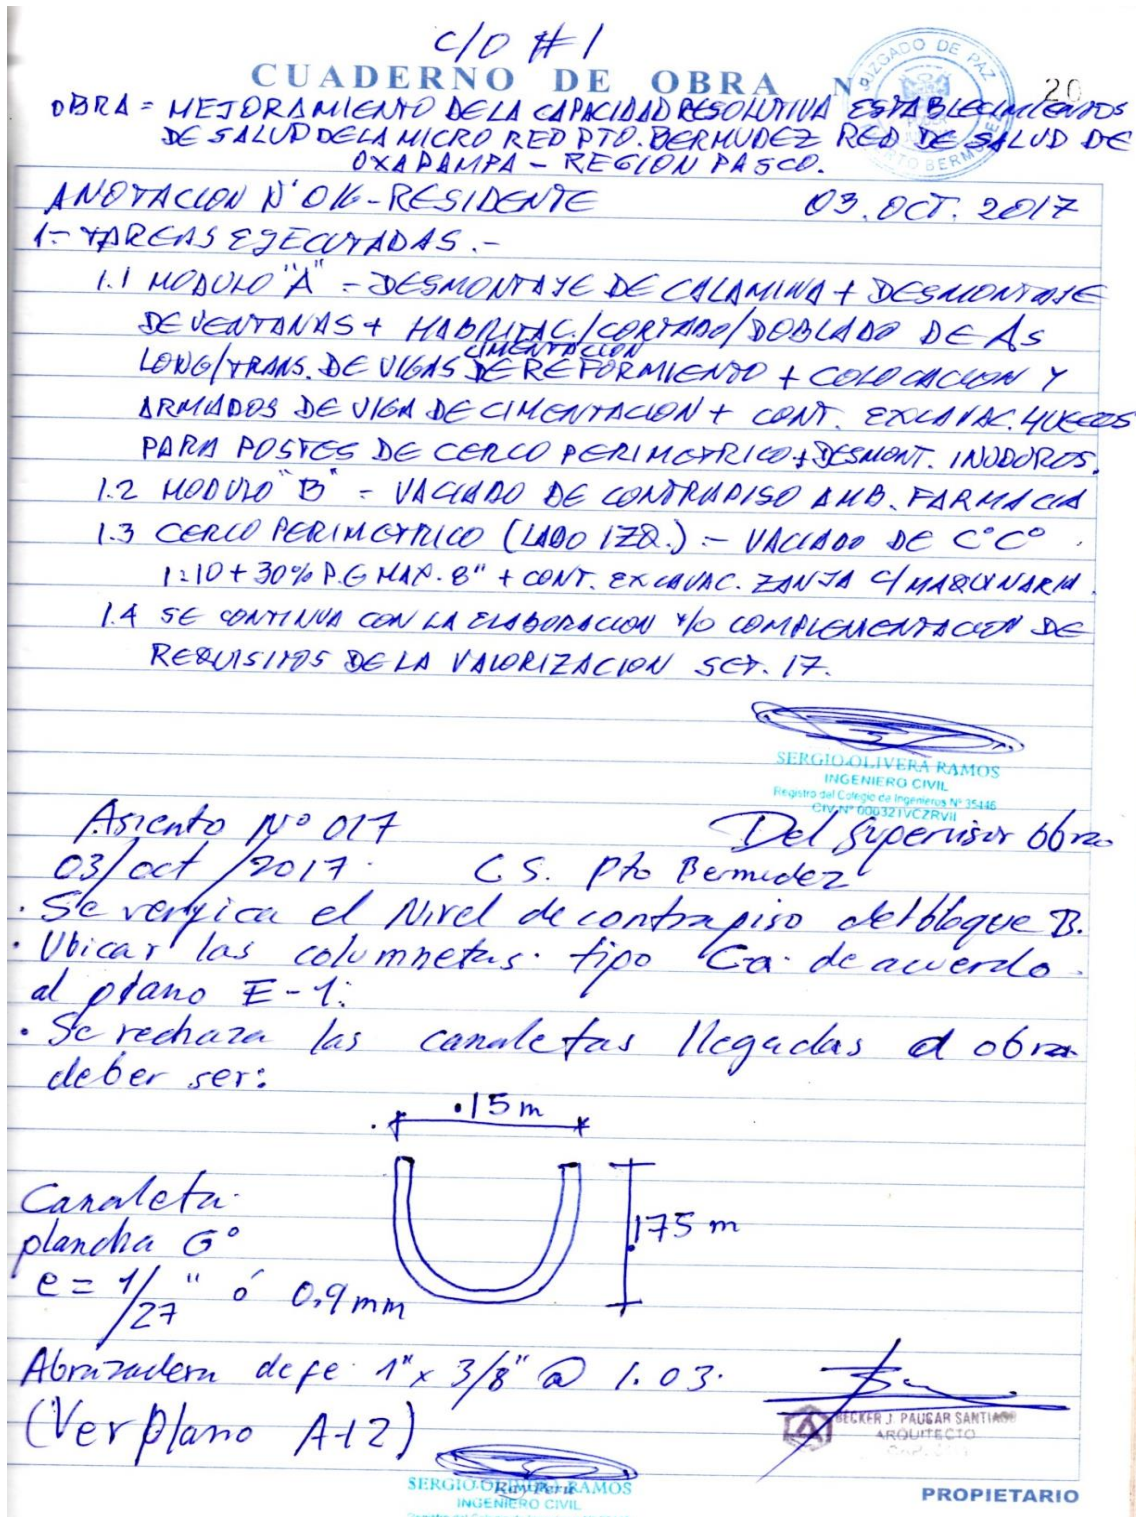 C/O #1
CUADERNO DE OBRA N
20
JUZGADO DE PAZ
PTO BERMUDEZ
OBRA = MEJORAMIENTO DE LA CAPACIDAD RESOLUTIVA ESTABLECIMIENTOS
DE SALUD DE LA MICRO RED PTO. BERMUDEZ RED DE SALUD DE
OXAPAMPA - REGION PASCO.
ANOTACION N° 016 - RESIDENTE 03. OCT. 2017
1.- TAREAS EJECUTADAS.-
1.1 MODULO "A" - DESMONTAJE DE CALAMINA + DESMONTAJE
DE VENTANAS + HABILITAC./CORTADO/DOBLADO DE As
CIMENTACION
LONG/TRANS. DE VIGAS DE REFORMIENTO + COLOCACION Y
ARMADOS DE VIGA DE CIMENTACION + CONT. EXCAVAC. HUECOS
PARA POSTES DE CERCO PERIMETRICO + DESMONT. INODOROS.
1.2 MODULO "B" - VACIADO DE CONTRAPISO AMB. FARMACIA
1.3 CERCO PERIMETRICO (LADO IZQ.) - VACIADO DE C°C°
1:10 + 30% P.G MAX. 8" + CONT. EXCAVAC. ZANJA C/MAQUINARIA.
1.4 SE CONTINUA CON LA ELABORACION Y/O COMPLEMENTACION DE
REQUISITOS DE LA VALORIZACION SET. 17.
SERGIO OLIVERA RAMOS
INGENIERO CIVIL
Registro del Colegio de Ingenieros N° 35446
CIV N° 000321VCZRVII
Asiento N° 017 Del supervisor obra
03/oct/2017. C.S. Pto Bermudez
. Se verifica el Nivel de contrapiso del bloque B.
. Ubicar las columnetas. tipo Ca. de acuerdo.
al plano E-1.
. Se rechaza las canaletas llegadas a obra
deber ser:
.15 m
.175 m
Canaleta.
plancha G°
e = 1/27" ó 0.9 mm
Abrazadera de fe 1" x 3/8" @ 1.03.
(Ver plano A-12)
BECKER J. PAUCAR SANTIAGO
ARQUITECTO
SERGIO OLIVERA RAMOS
Ray Perú
INGENIERO CIVIL
PROPIETARIO